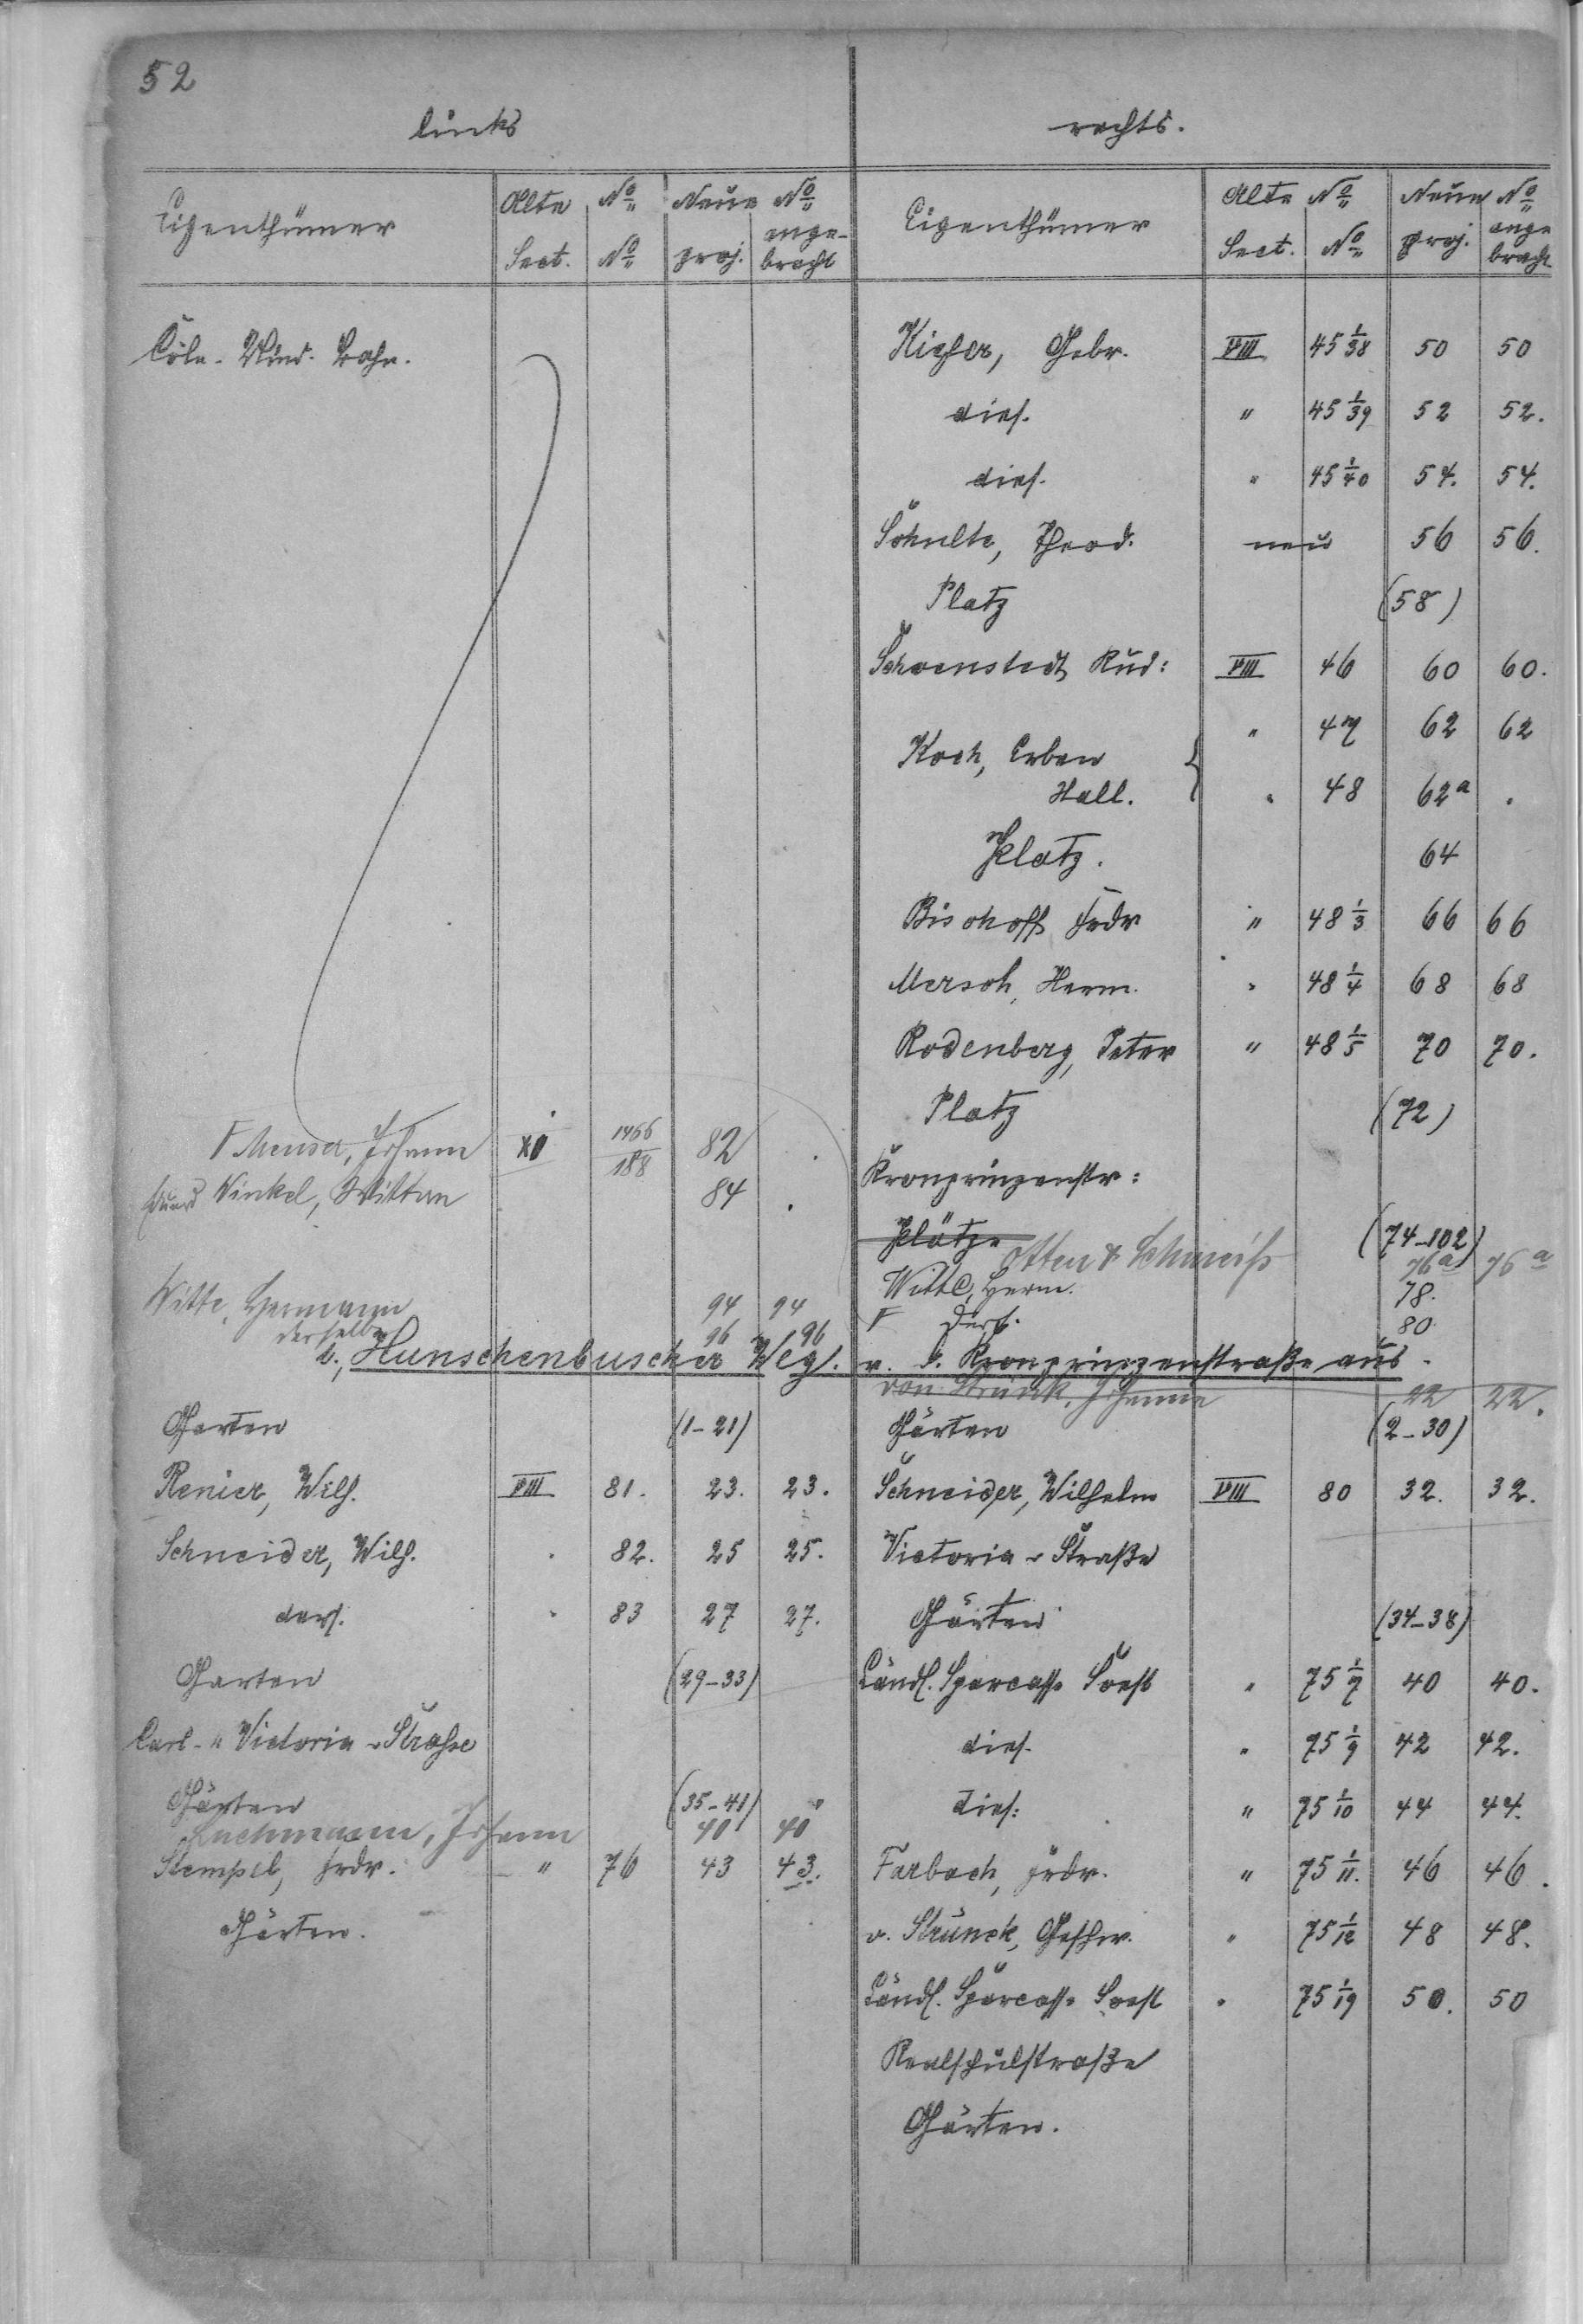 52
links
Eigenthümer Alte No Neue No
Sect. No proj. ange-bracht
Cöln-Mind. Bahn.
Menser, Johann XI 1466/188 82 .
Winkel, Witten 84 .
Witte, Hermann 94 94
derselbe 96 96
rechts.
Eigenthümer Alte No Neue No
Sect. No proj. ange bracht
Kiefer, Gebr. VIII 45 1/38 50 50
dies. " 45 1/39 52 52.
dies. " 45 1/40 54. 54.
Schulte, Theod. neu 56 56.
Platz (58)
Schoenstedt, Rud: VIII 46 60 60.
Koch, Erben { " 47 62 62
Stall. " 48 62a .
Platz. 64
Bischoff Frdr " 48 1/3 66 66
Mersch, Herm. " 48 1/4 68 68
Rodenberg, Peter " 48 1/5 70 70.
Platz (72)
Kronprinzenstr:
Plätze (74-102)
Otten & Schmeiss 76a 76a
Witte, Herm. 78.
Ders. 80.
b., Hunschenbuscher Weg. v. d. Kronprinzenstraße aus.
Garten (1-21)
Renier, Wilh. VIII 81. 23. 23.
Schneider, Wilh. " 82. 25 25.
ders. " 83 27 27.
Garten (29-33)
Carl- u Victoria-Strasse
Gärten (35-41) "
Luchmann, Johann 40 40
Stempel, Frdr. " 76 43 43.
Gärten.
von Strünk, Johann 22 22.
Gärten (2-30)
Schneider, Wilhelm VIII 80 32. 32.
Victoria-Straße
Gärten (34-38)
Ländl. Sparcasse Soest " 75 1/7 40 40.
dies. " 75 1/9 42 42.
dies: " 75 1/10 44 44.
Farbach, Frdr. " 75 1/11. 46 46.
v. Strünck, Geschw. " 75 1/12 48 48.
Ländl. Sparcasse Soest " 75 1/19 50. 50
Realschulstraße
Gärten.